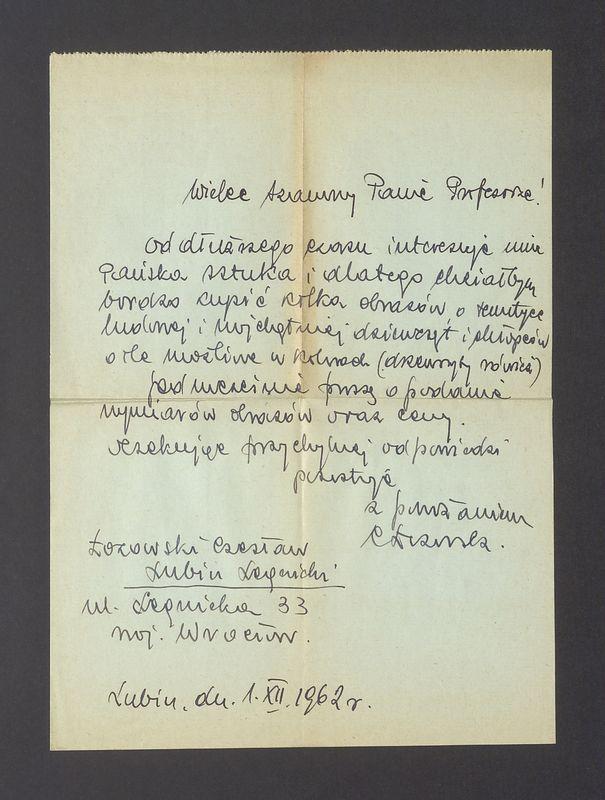 Wielce szanowny Panie Profesorze!
Od dłuższego czasu interesuje mnie
Pańska sztuka i dlatego chciałbym
bardzo kupić kilka obrazów o tematyce
ludowej i najchętniej dziewcząt i chłopców
o ile możliwe w kolorach (drzeworyty również)
Jednocześnie proszę o podanie
wymiarów obrazów oraz ceny.
Oczekując przychylnej odpowiedzi
pozostaję
z poważaniem
Łozowski Czesław
Lubin Legnicki
ul. Legnicka 33
woj. Wrocław.
Lubin, dn. 1.XII.1962 r.